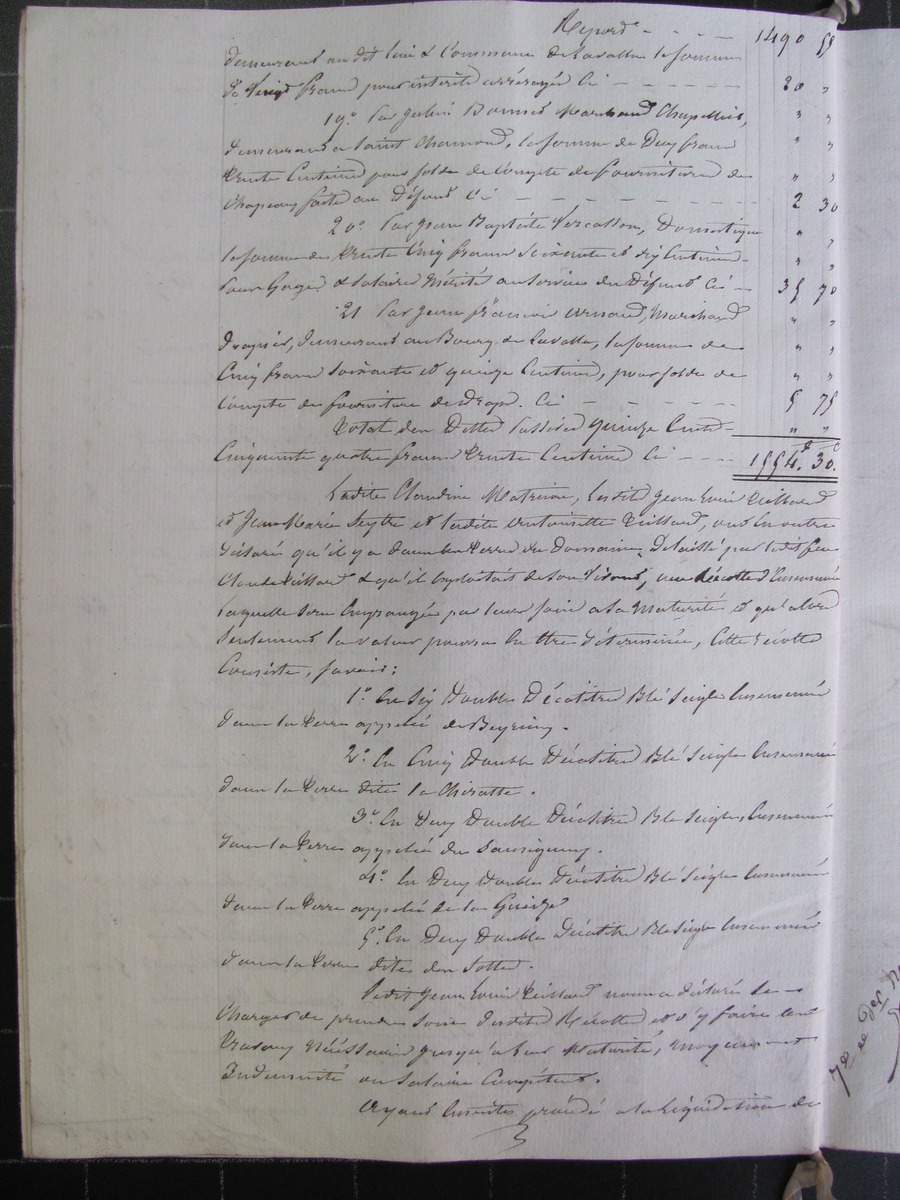 Report - - - - 1490 55
demeurant au dit lieu & Commune de Lavalla la somme
de Vingt francs pour intérêts arréragés Ci - - - - - - 20 "
19.° Par Marchand Chapellier, " "
demeurant a Saint Chamond, la somme de Deux francs " "
trente Centimes pour solde de Compte de fournitures de " "
Chapeaux faites au Défunt Ci - - - - - - - - 2 30
20.° Par Jean Baptiste Domestique " "
la somme de trente Cinq francs Soixante et dix Centimes " "
pour Gages & salaires Mérités au Services du Défunt Ci - 35 70
21 Par Jean françois Arnaud, Marchand " "
drapier, demeurant au Bourg de Lavalla, la somme de " "
Cinq francs Soixante et quinze Centimes, pour solde de " "
Compte de fourniture de draps. Ci - - - - - - - 5 75
Total des Dettes Passives quinze Cent " "
Cinquante quatre francs trente Centimes Ci - - - - 1554.f 30.c
Ladite Claudine Matricon, Ledit Jean Louis
et Jean Marie Seytre et ladite Antoinette ont en outre
déclaré qu'il y a dans les terres du Domaine Délaissé par ledit feu
Claude & qu'il Exploitait de son Vivant, une Récolte Ensemencée
laquelle sera Engrangée par leur soin a sa Maturité et qu'alors
seulement la valeur pourra En être déterminée, Cette Récolte
Consiste, savoir:
1.° En Six Double Décalitres Blé Seigle Ensemencés
dans la terre appelée de
2.° En Cinq Double Décalitres Blé Seigle Ensemencés
dans la terre dite la Chiratte.
3.° En Deux Double Décalitres Blé Seigle, Ensemencés
dans la terre appelée du
4.° En Deux Doubles Décalitres Blé Seigle Ensemencés
dans la terre appelée de la
5.° En Deux Double Décalitres Blé Seigle Ensemencés
dans la terre dite des
Ledit Jean Louis nous a déclaré se
Charger de prendre soin desdites Récoltes et d'y faire les
travaux Nécessaires jusqu'a leur Maturité, moyennant
Indemnité ou Salaire Compétent.
Ayant Ensuite procédé a la Liquidation de